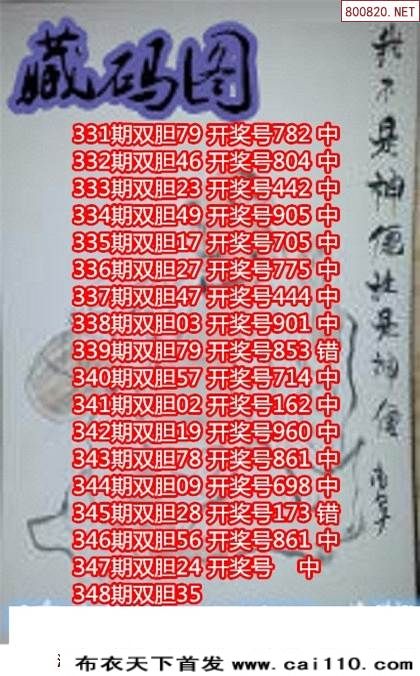 800820.NET
藏码图
我不是神仙杜是神仙
331期双胆79 开奖号782 中
332期双胆46 开奖号804 中
333期双胆23 开奖号442 中
334期双胆49 开奖号905 中
335期双胆17 开奖号705 中
336期双胆27 开奖号775 中
337期双胆47 开奖号444 中
338期双胆03 开奖号901 中
339期双胆79 开奖号853 错
340期双胆57 开奖号714 中
341期双胆02 开奖号162 中
342期双胆19 开奖号960 中
343期双胆78 开奖号861 中
344期双胆09 开奖号698 中
345期双胆28 开奖号173 错
346期双胆56 开奖号861 中
347期双胆24 开奖号 中
348期双胆35
布衣天下首发 www.cai110.com